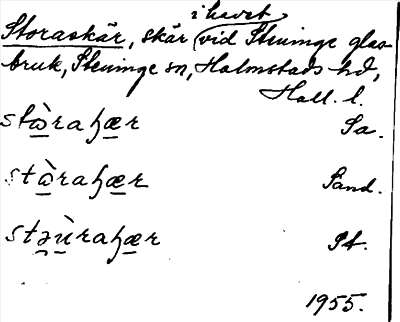 i havet
Storaskär, skär vid Steninge glas-
bruk, Steninge sn, Halmstads hd,
Hall. l.
stɷ̀raꞕær Sa.
stɷ̀raꞕær Sand.
stəu̇̀raꞕær St.
1955.